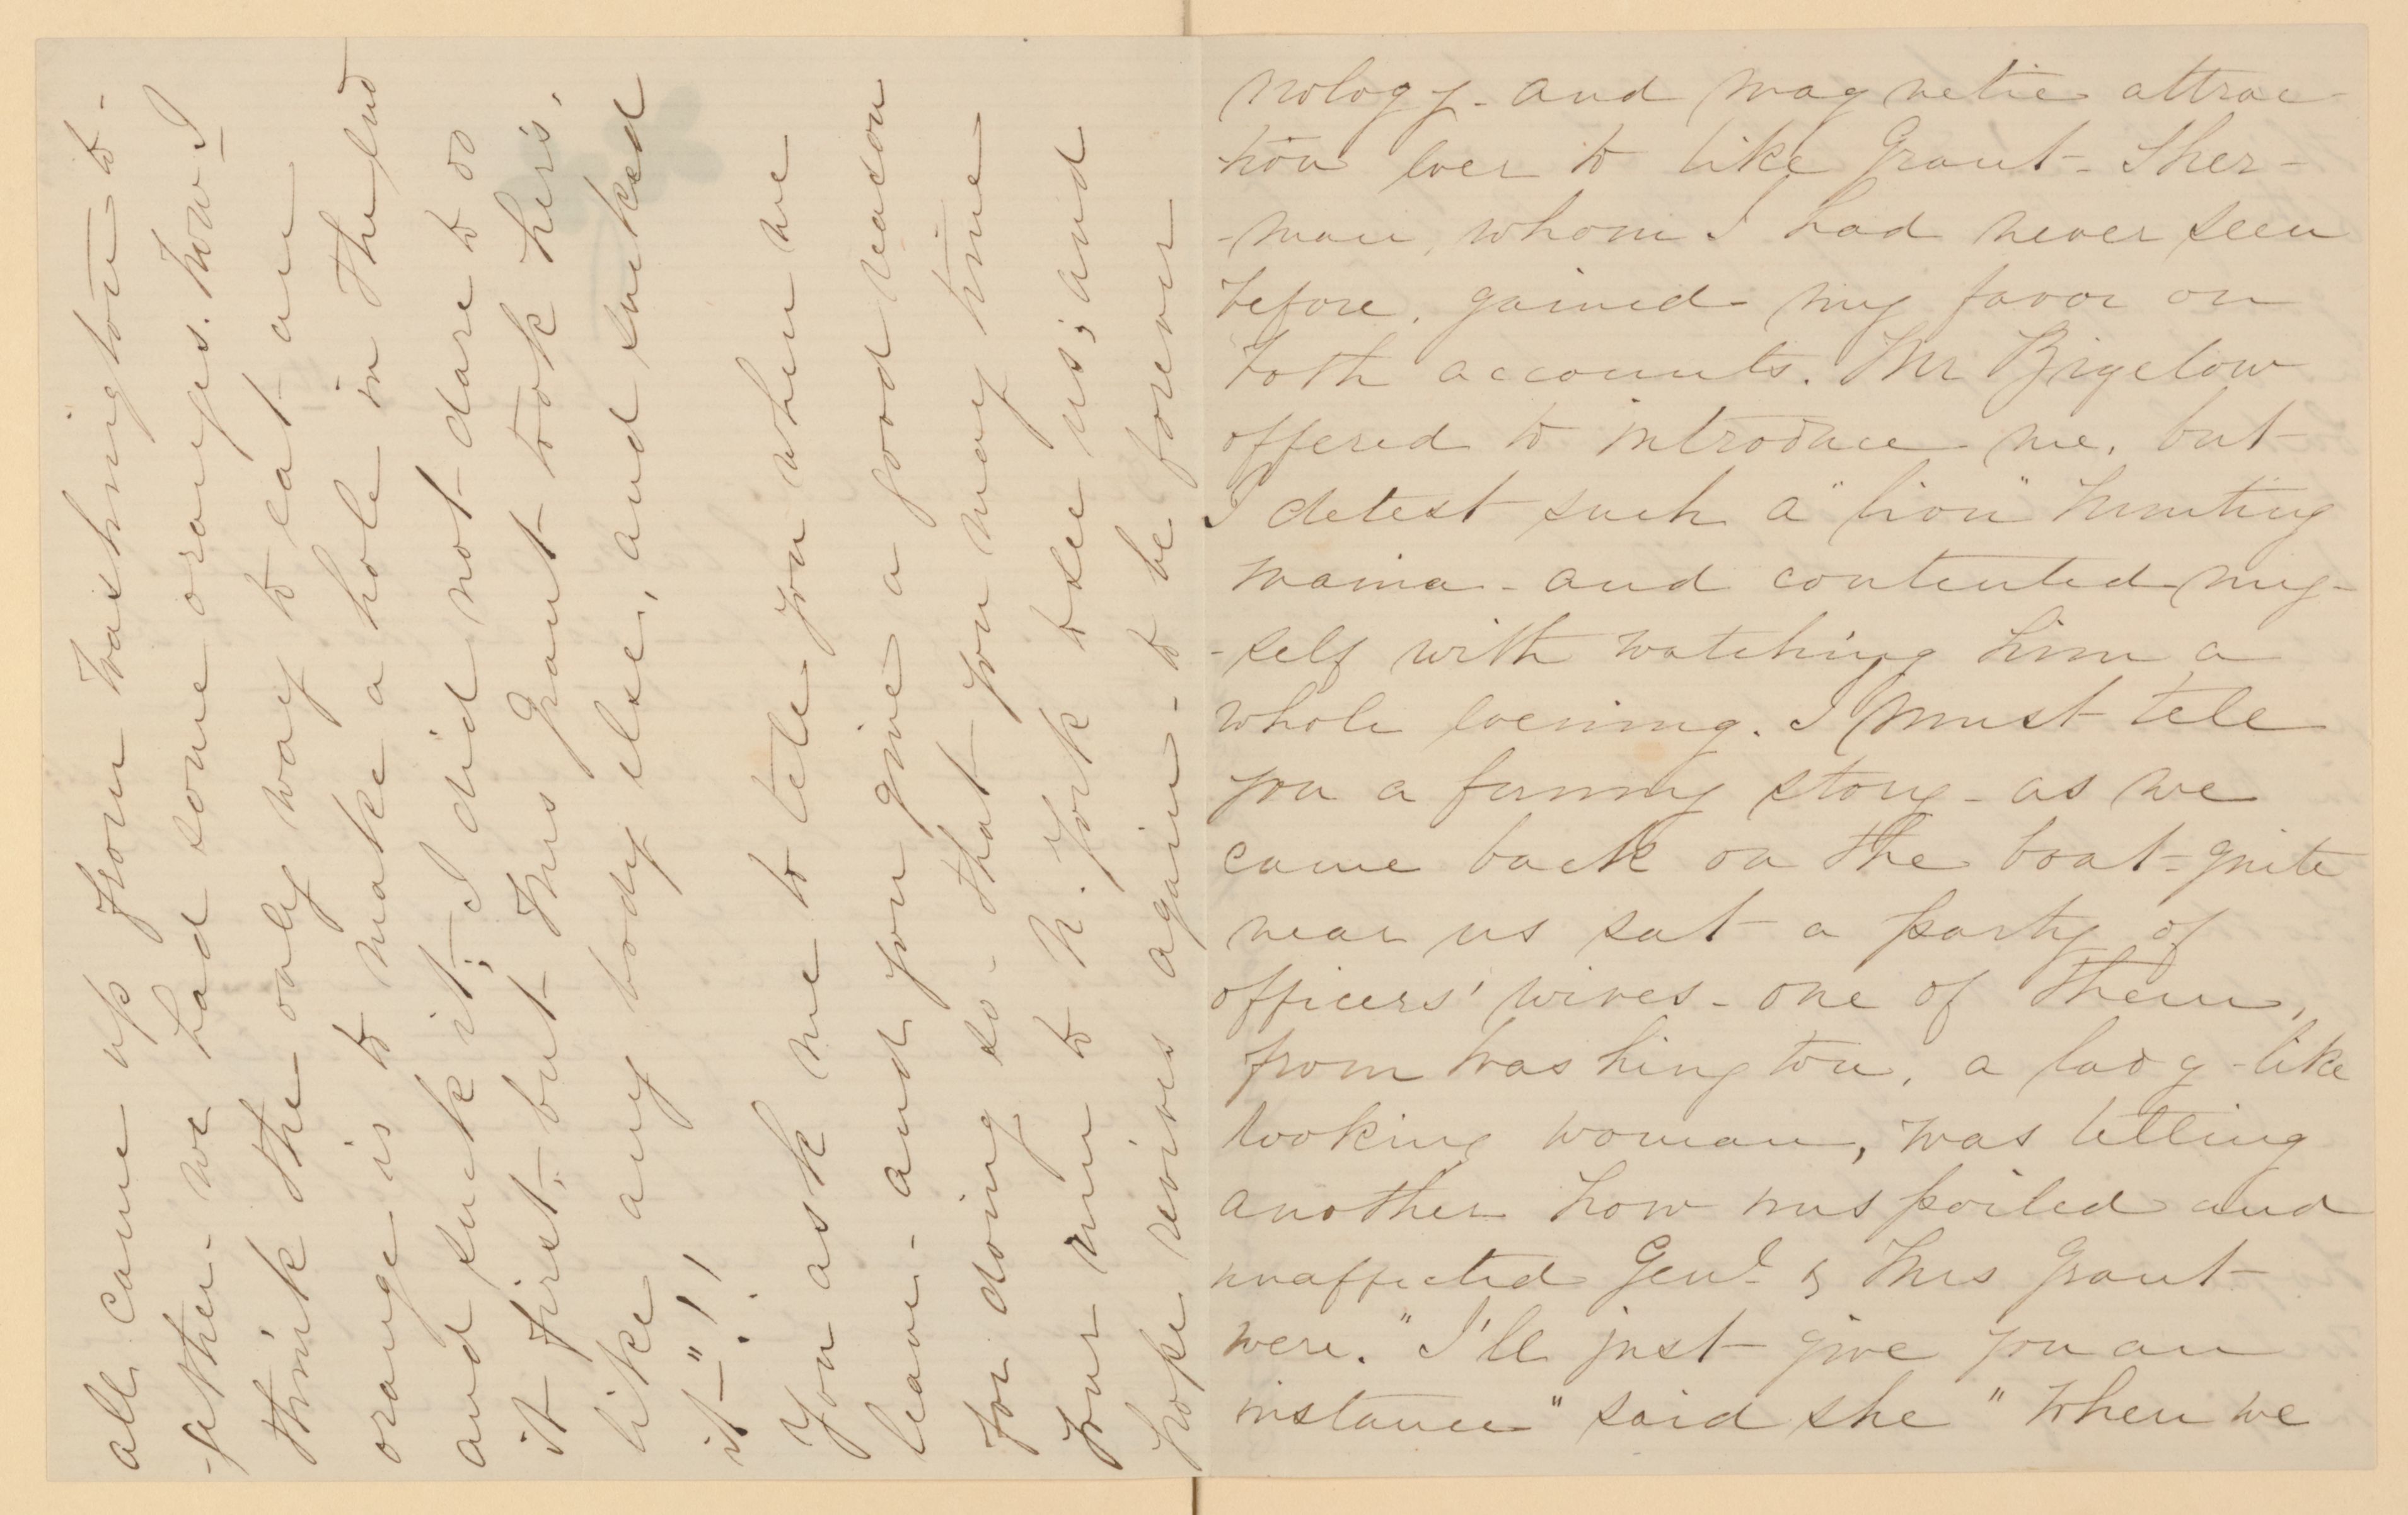 nology- and magnetic attrac-
-tion ever to like Grant- Sher-
-man, whom I had never seen
before, gained my favor on
both accounts. Mr Bigelow
offered to introduce me, but
I detest such a "lion" hunting
mania- and contented my-
-self with watching him a
whole evening. I must tell
you a funny story- as we
came back on the boat- quite
near us sat a party of
officers' wives- one of them,
from Washington, a lady-like
looking woman, was telling
another how unspoiled and
unaffected Genl & Mrs Grant
were. "I'll just give you an
instance" said she "When we
all came up from Washington to-
-gether- we had some oranges. Now I
think the only way to eat an
orange is to make a hole in the end
and suck it; I did not dare to do
it first- but Mrs Grant took hers,
like any body else, and sucked
it-"!!
You ask me to tell you when we
leave- and you give a good reason
for doing so- that you may time
your run to N. York to see us; and
hope revives again- to be forever